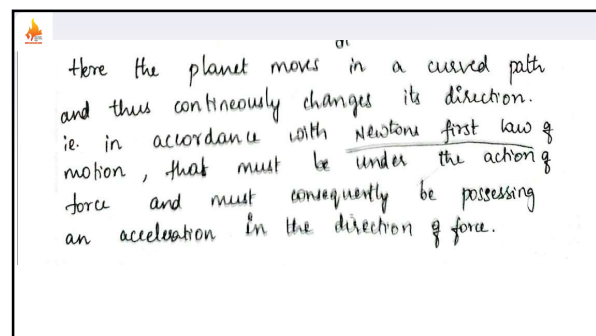 Here the planet moves in a curved path
and thus contineously changes its direction.
ie. in accordance with Newtons first law of
motion, that must be under the action of
force and must consequently be possessing
an acceleration in the direction of force.